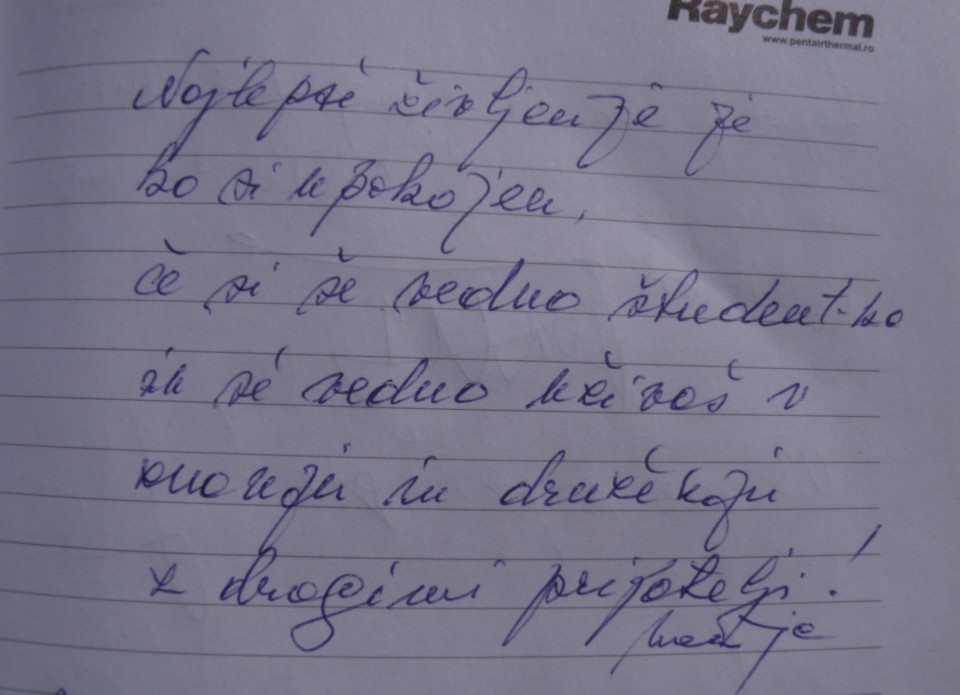 Raychem
www.pentairthermal.ro
Najlepše življenje je
ko si upokojen,
če si še vedno študent-ka
in še vedno uživaš v
znanju in druženju
z dragimi prijatelji!